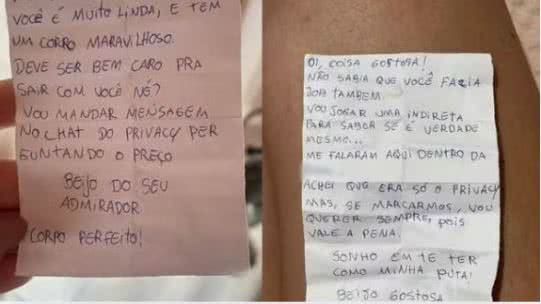 VOCÊ É MUITO LINDA, E TEM
UM CORPO MARAVILHOSO.
DEVE SER BEM CARO PRA
SAIR COM VOCÊ NÉ?
VOU MANDAR MENSAGEM
NO CHAT DO PRIVACY PER
GUNTANDO O PREÇO
BEIJO DO SEU
ADMIRADOR.
CORPO PERFEITO!
OI, COISA GOSTOSA!
NÃO SABIA QUE VOCÊ FAZIA
JOB TAMBEM.
VOU JOGAR UMA INDIRETA
PARA SABER SE É VERDADE
MESMO...
ME FALARAM AQUI DENTRO DA
ACHEI QUE ERA SÓ O PRIVACY
MAS, SE MARCARMOS, VOU
QUERER SEMPRE, POIS
VALE A PENA.
SONHO EM TE TER
COMO MINHA PUTA!
BEIJO GOSTOSA